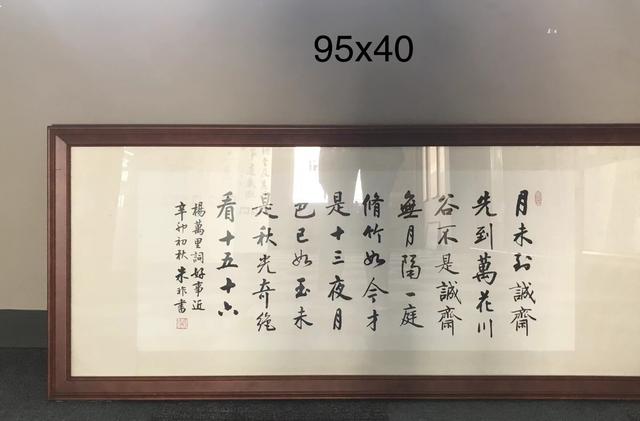 95x40
月未到誠齋
先到萬花川
谷不是誠齋
無月隔一庭
脩竹如今才
是十三夜月
色已如玉未
是秋光奇絶
看十五十六
楊萬里詞好事近
辛卯初秋米非書